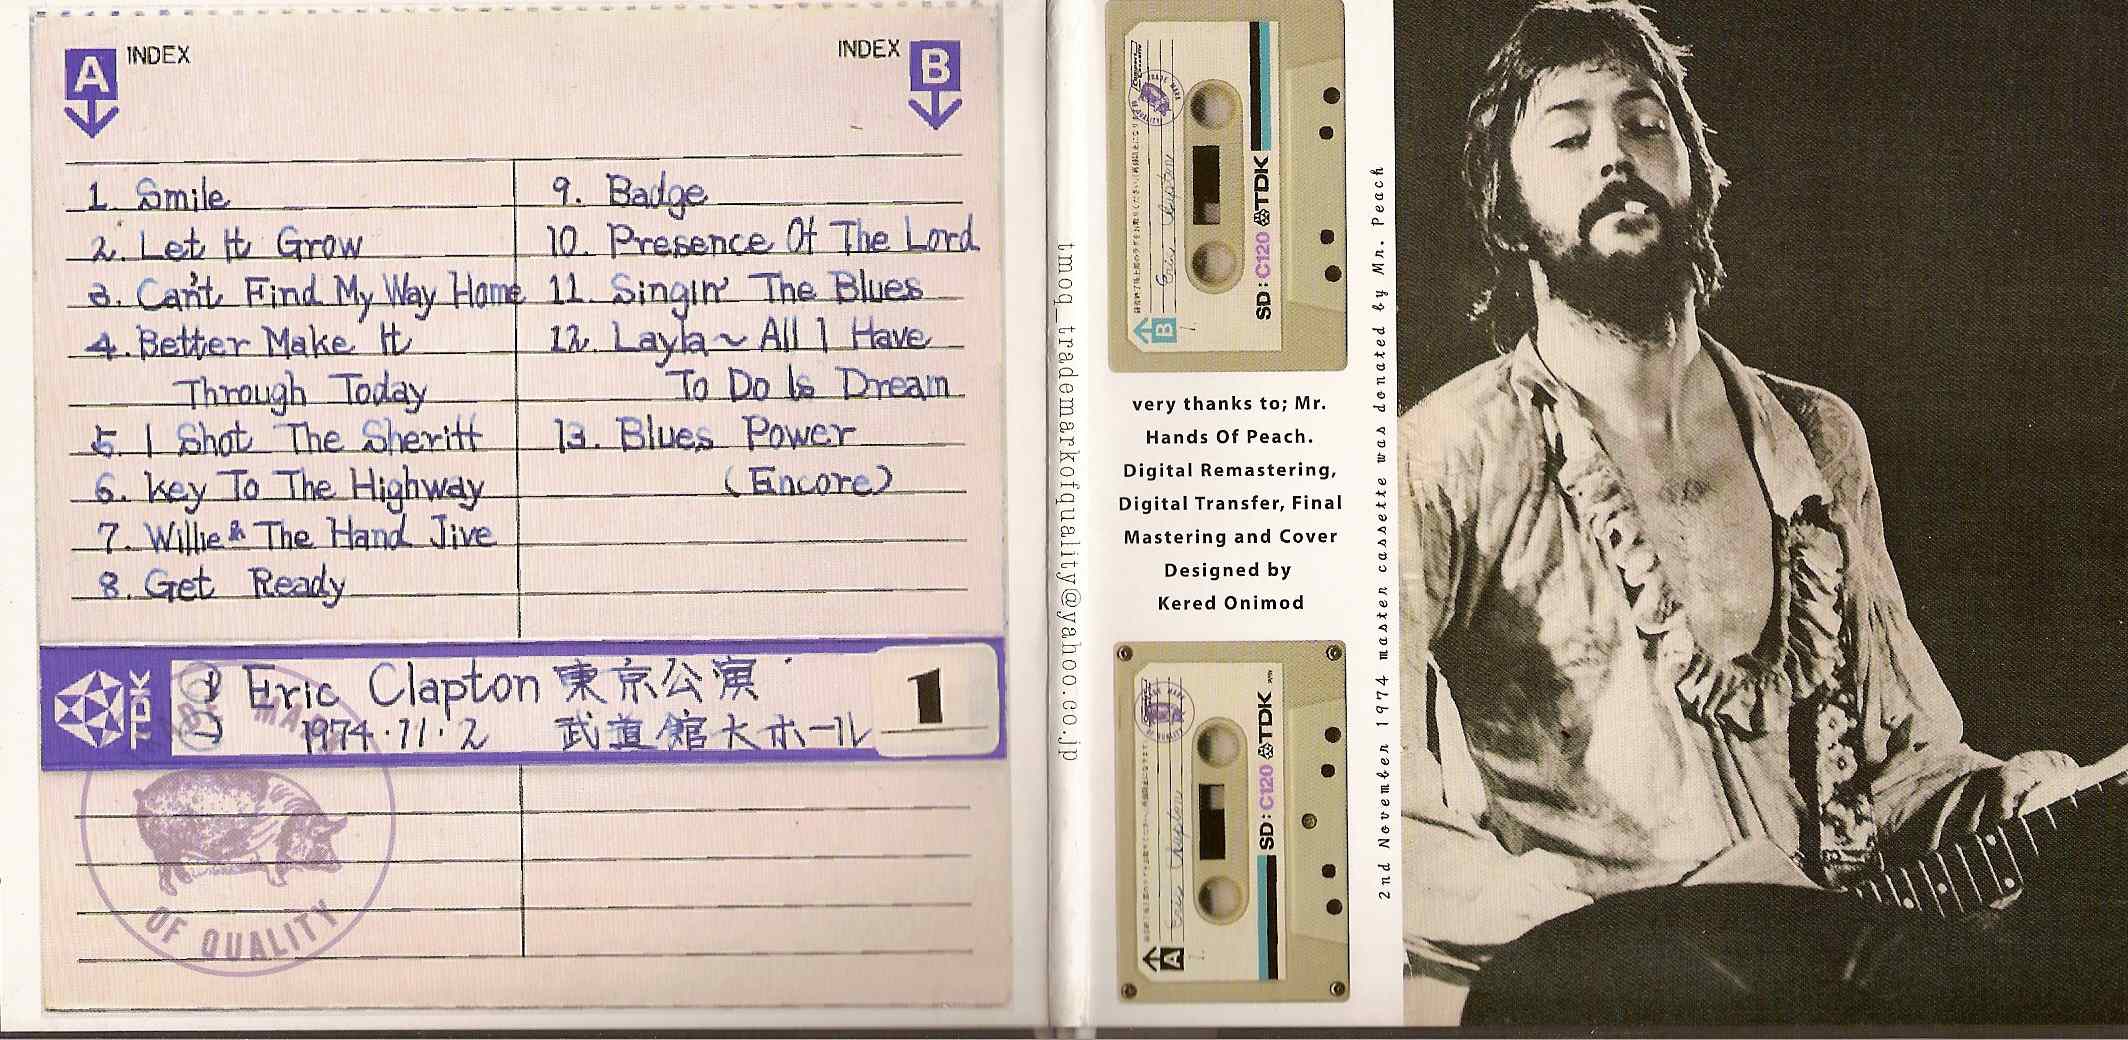 A INDEX
INDEX B
1. Smile
2. Let It Grow
3. Can't Find My Way Home
4. Better Make It
Through Today
5. I Shot The Sheriff
6. Key To The Highway
7. Willie & The Hand Jive
8. Get Ready
9. Badge
10. Presence Of The Lord
11. Singin' The Blues
12. Layla ~ All I Have
To Do Is Dream
13. Blues Power
(Encore)
TDK
Eric Clapton 東京公演
1974・11・2 武道館大ホール
1
OF QUALITY
tmoq_trademarkofquality@yahoo.co.jp
B
Eric Clapton
SD:C120 TDK
very thanks to; Mr.
Hands Of Peach.
Digital Remastering,
Digital Transfer, Final
Mastering and Cover
Designed by
Kered Onimod
A
Eric Clapton
SD:C120 TDK
2nd November 1974 master cassette was donated by Mr. Peach